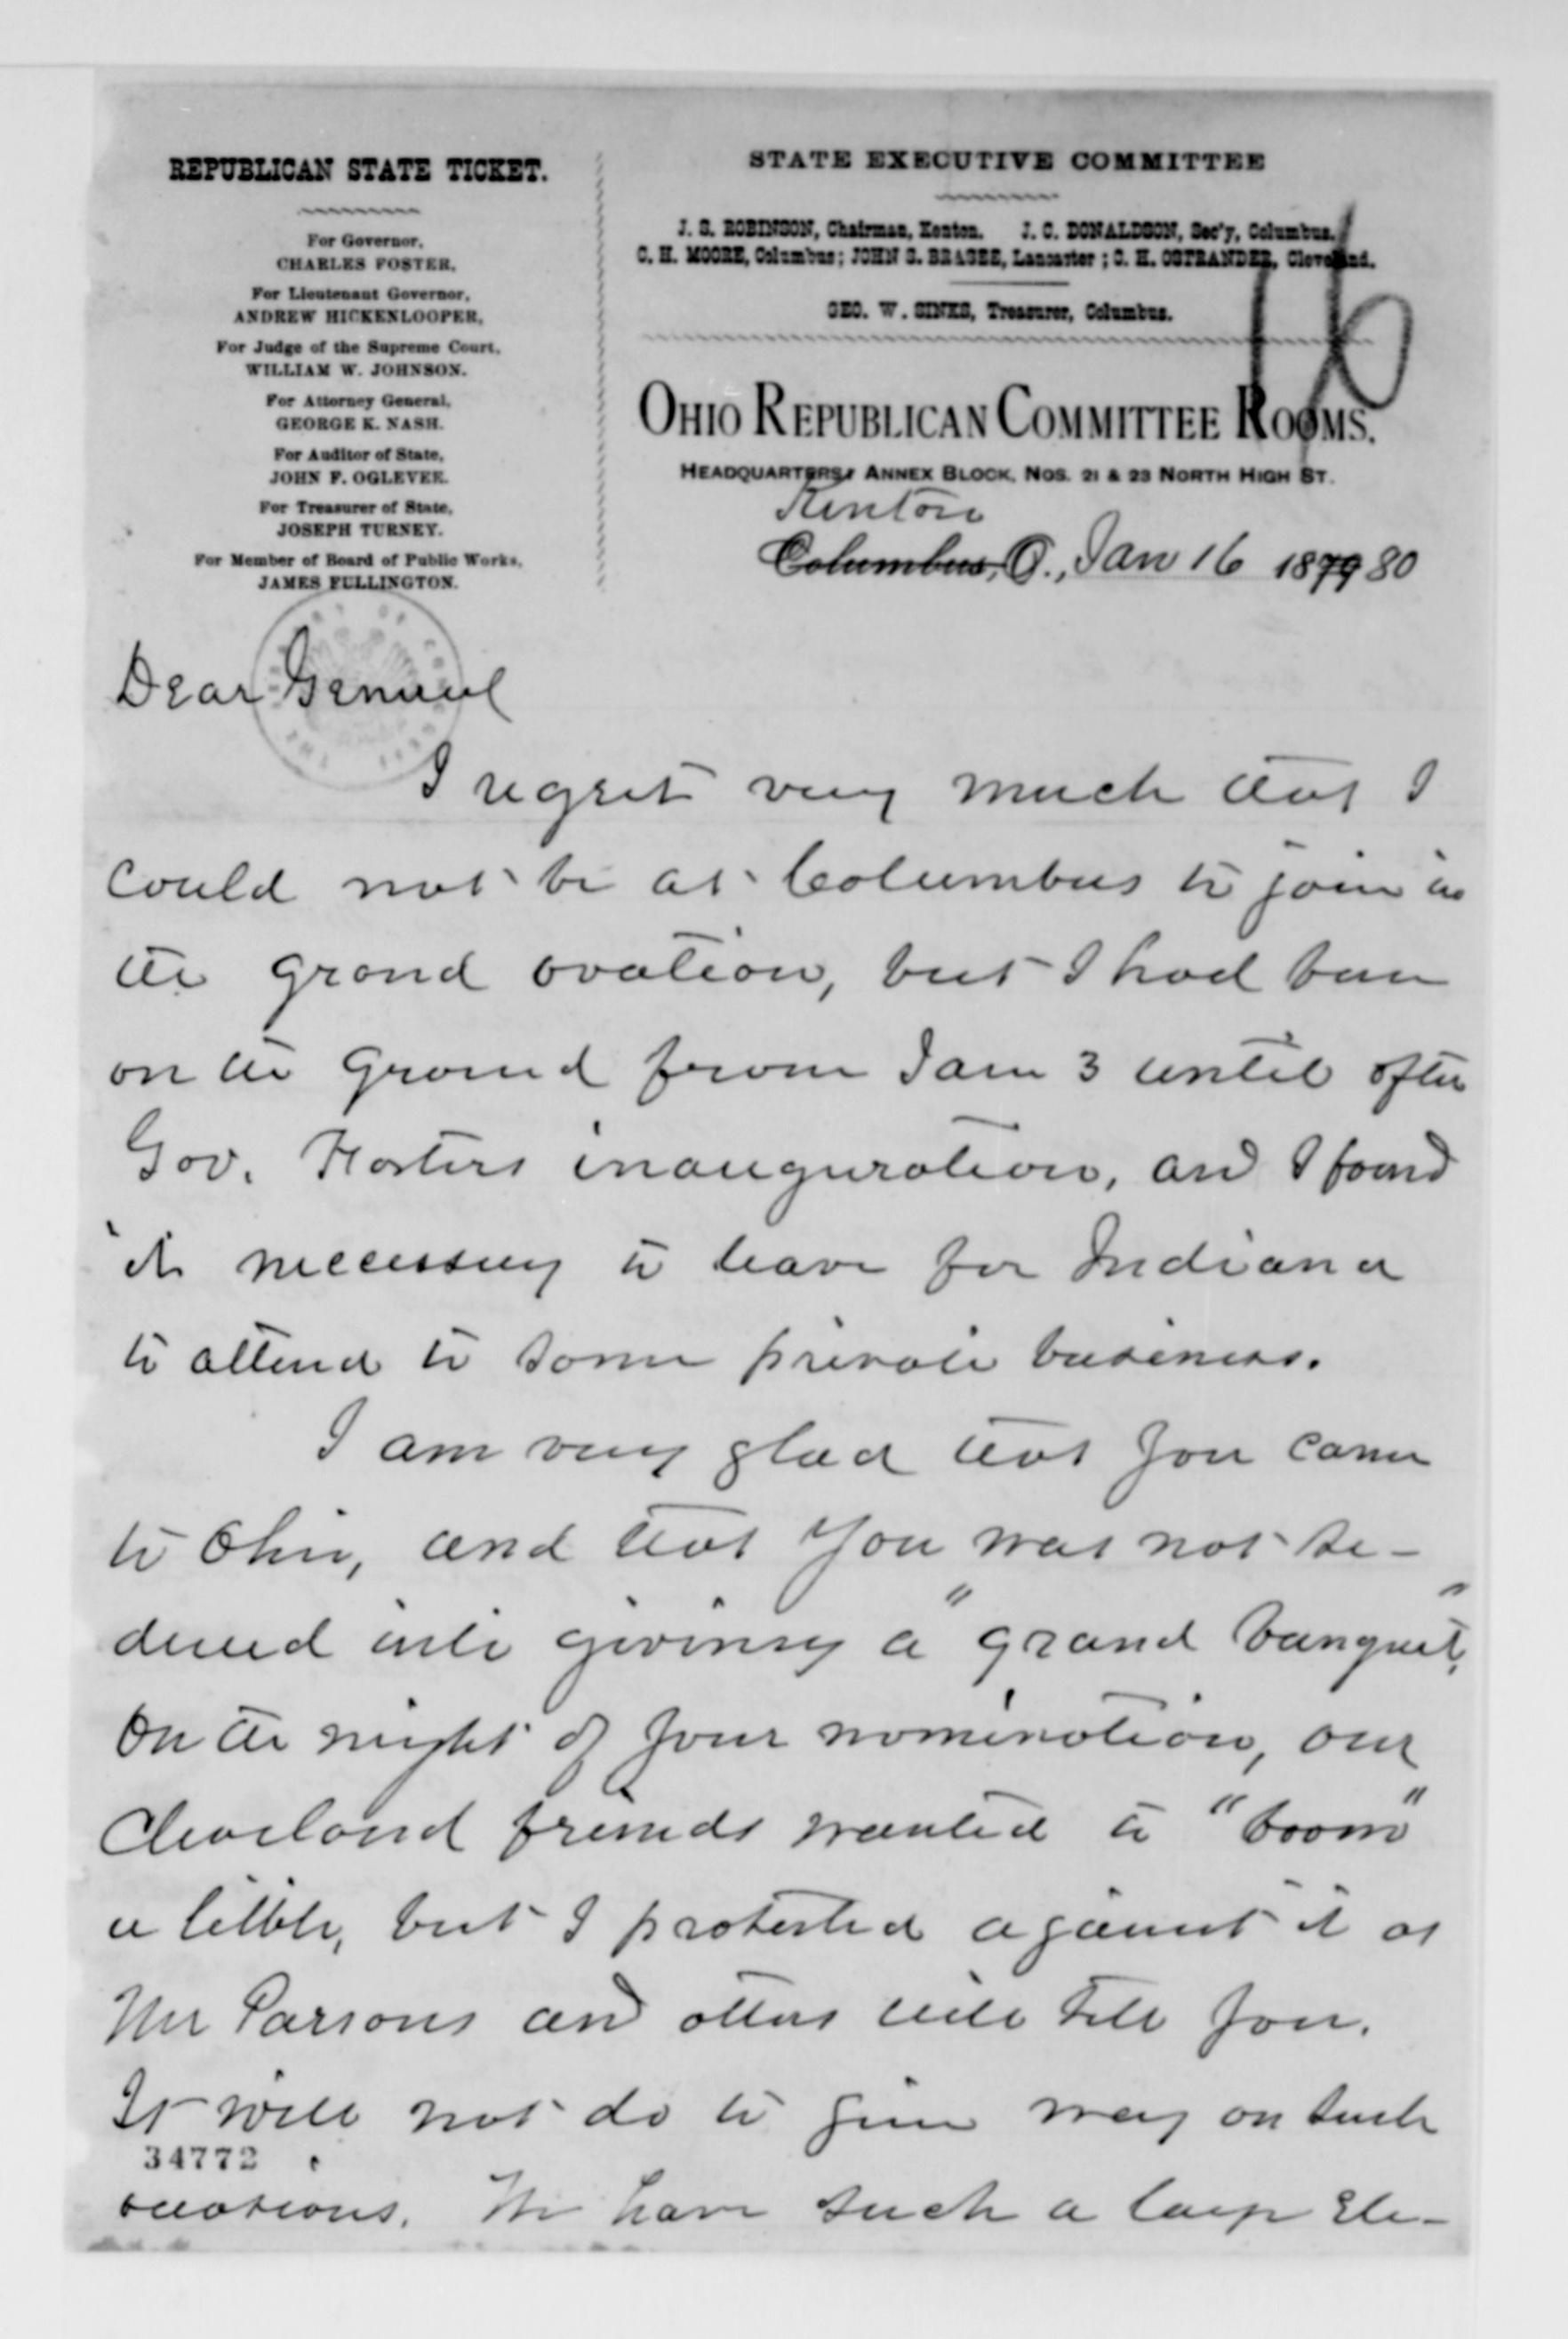 REPUBLICAN STATE TICKET.
For Governor,
CHARLES FOSTER.
For Lieutenant Governor,
ANDREW HICKENLOOPER.
For Judge of the Supreme Court,
WILLIAM W. JOHNSON.
For Attorney General,
GEORGE K. NASH.
For Auditor of State,
JOHN F. OGLEVEE.
For Treasurer of State,
JOSEPH TURNEY.
For Member of Board of Public Works,
JAMES FULLINGTON.
STATE EXECUTIVE COMMITTEE
J. S. ROBINSON, Chairman, Kenton. J. C. DONALDSON, Sec'y, Columbus.
C. H. MOORE, Columbus; JOHN S. BRASEE, Lancaster; C. H. OSTRANDER, Cleveland.
GEO. W. SINKS, Treasurer, Columbus.
16
OHIO REPUBLICAN COMMITTEE ROOMS.
HEADQUARTERS, ANNEX BLOCK, NOS. 21 & 23 NORTH HIGH ST.
Kenton
Columbus, O., Jan 16 1879 80
Dear General
I regret very much that I
could not be at Columbus to join in
the grand ovation, but I had been
on the ground from Jan 3 until after
Gov. Fosters inauguration, and I found
it necessary to leave for Indiana
to attend to some private business.
I am very glad that you came
to Ohio, and that you was not se-
duced into giving a "grand banquet,"
on the night of your nomination, our
Cleveland friends wanted to "boom"
a little, but I protested against it as
Mr Parsons and others will tell you.
It will not do to give way on such
34772
occasions. We have such a large ele-